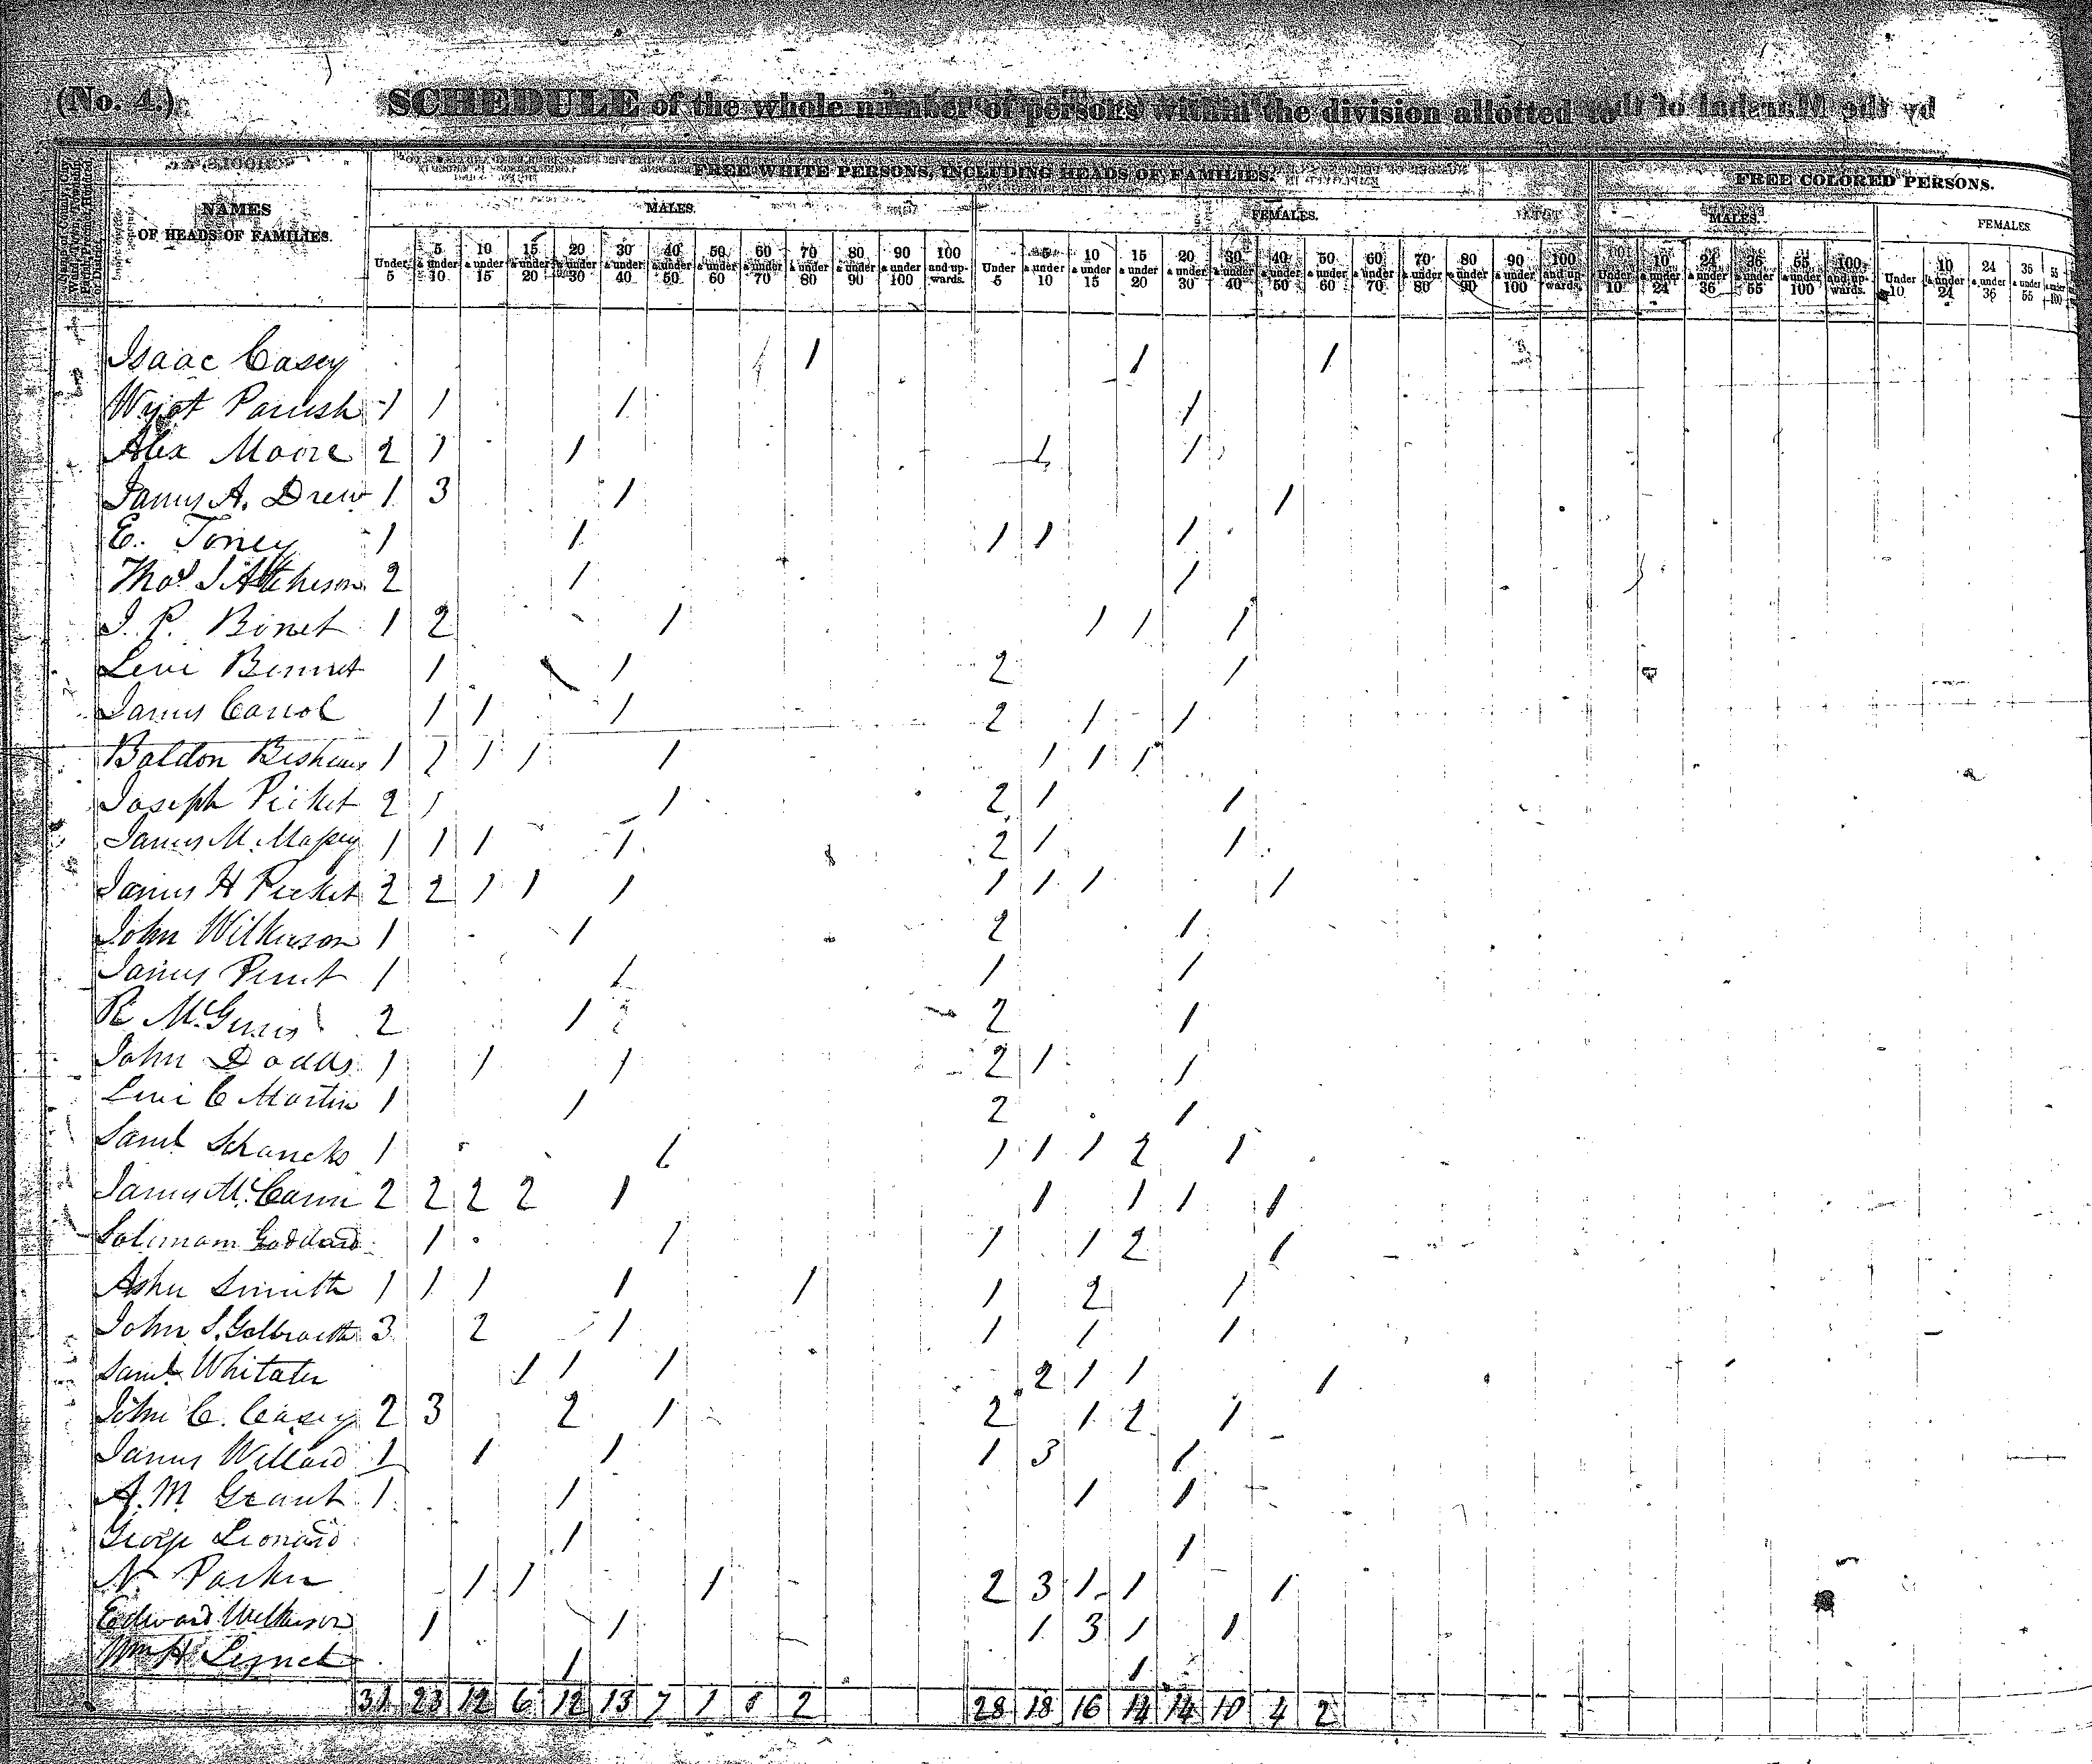 (No. 4.) SCHEDULE of the whole number of persons within the division allotted to by the Marshal of the
NAMES OF HEADS OF FAMILIES.
FREE WHITE PERSONS, INCLUDING HEADS OF FAMILIES.
FREE COLORED PERSONS.
MALES. FEMALES. MALES. FEMALES.
Under 5 | 5 & under 10 | 10 & under 15 | 15 & under 20 | 20 & under 30 | 30 & under 40 | 40 & under 50 | 50 & under 60 | 60 & under 70 | 70 & under 80 | 80 & under 90 | 90 & under 100 | 100 and upwards. | Under 5 | 5 & under 10 | 10 & under 15 | 15 & under 20 | 20 & under 30 | 30 & under 40 | 40 & under 50 | 50 & under 60 | 60 & under 70 | 70 & under 80 | 80 & under 90 | 90 & under 100 | 100 and upwards. | Under 10 | 10 & under 24 | 24 & under 36 | 36 & under 55 | 55 & under 100 | 100 and upwards. | Under 10 | 10 & under 24 | 24 & under 36 | 36 & under 55 | 55 & under 100
Isaac Casey 1 1 1
Wyat Parish 1 1 1 1
Alex Moore 2 1 1 1 1
James A. Drew 1 3 1 1
E. Toney 1 1 1 1 1
Thos J Atcheson 2 1 1
J. P. Binet 1 2 1 1 1 1
Levi Bennet 1 1 2 1
James Carrol 1 1 1 2 1 1
Baldon 1 2 1 1 1 1 1 1
Joseph Picket 2 1 1 2 1 1
James M. Massey 1 1 1 1 2 1 1
James H Picket 2 2 1 1 1 1 1 1 1
John Wilkerson 1 1 2 1
James 1 1 1 1
R 2 1 2 1
John Dodds 1 1 1 2 1 1
Levi C Martin 1 1 2 1
Saml Schancks 1 1 1 1 1 2 1
James McCann 2 2 2 2 1 1 1 1 1
Solimam Goddard 1 1 1 1 2 1
Asher Smith 1 1 1 1 1 1 2 1
John S. Galbraeth 3 2 1 1 1 1
Saml Whitaker 1 1 1 2 1 1 1
John C. Casey 2 3 2 1 2 1 2 1
James Willard 1 1 1 1 3 1
A. M. Grant 1 1 1 1
George Leonard 1 1
N Parker 1 1 1 2 3 1 1 1
Edward Wilkerson 1 1 1 3 1 1
Wm H Lynch 1 1
31 23 12 6 12 13 7 1 0 2 28 18 16 14 14 10 4 2